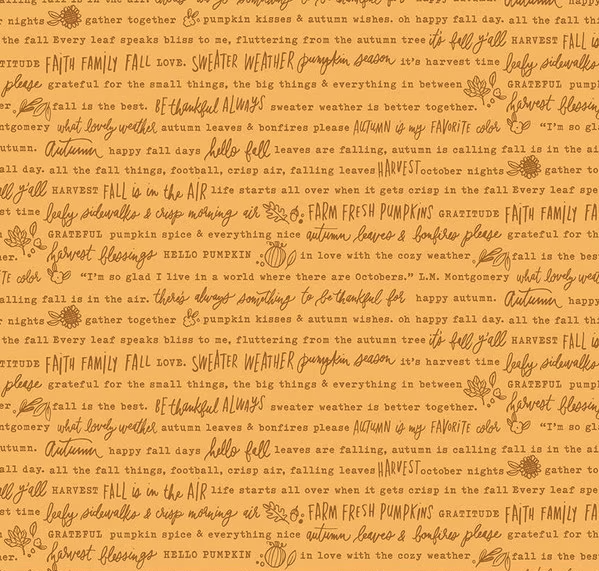 nights gather together pumpkin kisses & autumn wishes. oh happy fall day. all the thi
the fall Every leaf speaks bliss to me, fluttering from the autumn tree it's fall y'all HARVEST FALL is
TITUDE FAITH FAMILY FALL LOVE. SWEATER WEATHER pumpkin season it's harvest time leafy sidewalks
please grateful for the small things, the big things & everything in between GRATEFUL pumpk
er. fall is the best. BE thankful ALWAYS sweater weather is better together. harvest blessing
ntgomery what lovely weather autumn leaves & bonfires please AUTUMN is my FAVORITE color "I'm so gla
utumn. Autumn happy fall days hello fall leaves are falling, autumn is calling fall is in the air
all day. all the fall things, football, crisp air, falling leaves HARVEST october nights gather to
all y'all HARVEST FALL is in the AIR life starts all over when it gets crisp in the fall Every leaf spe
st time leafy sidewalks & crisp morning air FARM FRESH PUMPKINS GRATITUDE FAITH FAMILY FA
GRATEFUL pumpkin spice & everything nice autumn leaves & bonfires please grateful for th
er. harvest blessings HELLO PUMPKIN in love with the cozy weather fall is the bes
ITE color "I'm so glad I live in a world where there are Octobers." L.M. Montgomery what lovely weath
alling fall is in the air. there's always something to be thankful for happy autumn. Autumn happ
r nights gather together pumpkin kisses & autumn wishes. oh happy fall day. all the fall thi
the fall Every leaf speaks bliss to me, fluttering from the autumn tree it's fall y'all HARVEST FALL is
TITUDE FAITH FAMILY FALL LOVE. SWEATER WEATHER pumpkin season it's harvest time leafy sidewalks
please grateful for the small things, the big things & everything in between GRATEFUL pumpk
er. fall is the best. BE thankful ALWAYS sweater weather is better together. harvest blessing
ntgomery what lovely weather autumn leaves & bonfires please AUTUMN is my FAVORITE color "I'm so
utumn. Autumn happy fall days hello fall leaves are falling, autumn is calling fall is in the air
all day. all the fall things, football, crisp air, falling leaves HARVEST october nights gather to
all y'all HARVEST FALL is in the AIR life starts all over when it gets crisp in the fall Every leaf spe
st time leafy sidewalks & crisp morning air FARM FRESH PUMPKINS GRATITUDE FAITH FAMILY FA
GRATEFUL pumpkin spice & everything nice autumn leaves & bonfires please grateful for th
er. harvest blessings HELLO PUMPKIN in love with the cozy weather fall is the bes